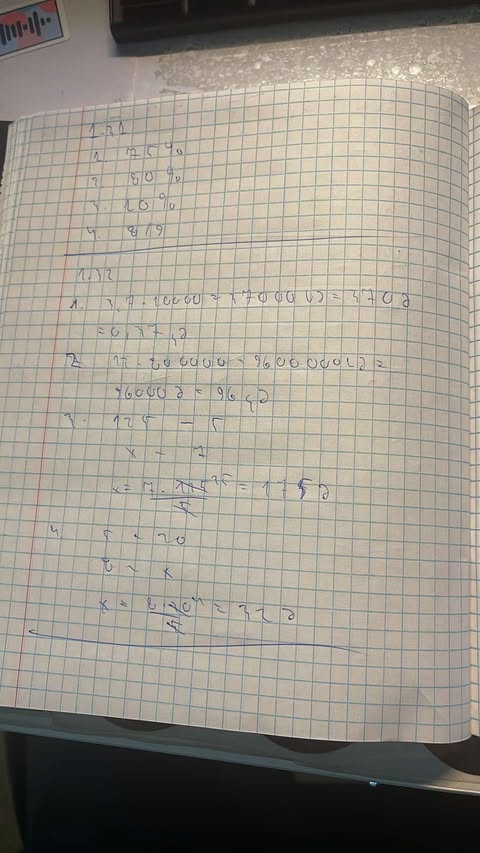 1.31
1. 75%
2. 80%
3. 20%
4. 8/9
1.32
1. 3,7 · 10000 = 37000 სმ = 370 მ
= 0,37 კმ
2. 12 · 800000 = 9600000 სმ =
96000 მ = 96 კმ
3. 125 - 5
x - 7
x = 7 · 125 25 / 5 = 175 მ
4. 5 - 20
8 - x
x = 8 · 20 4 / 5 = 32 მ